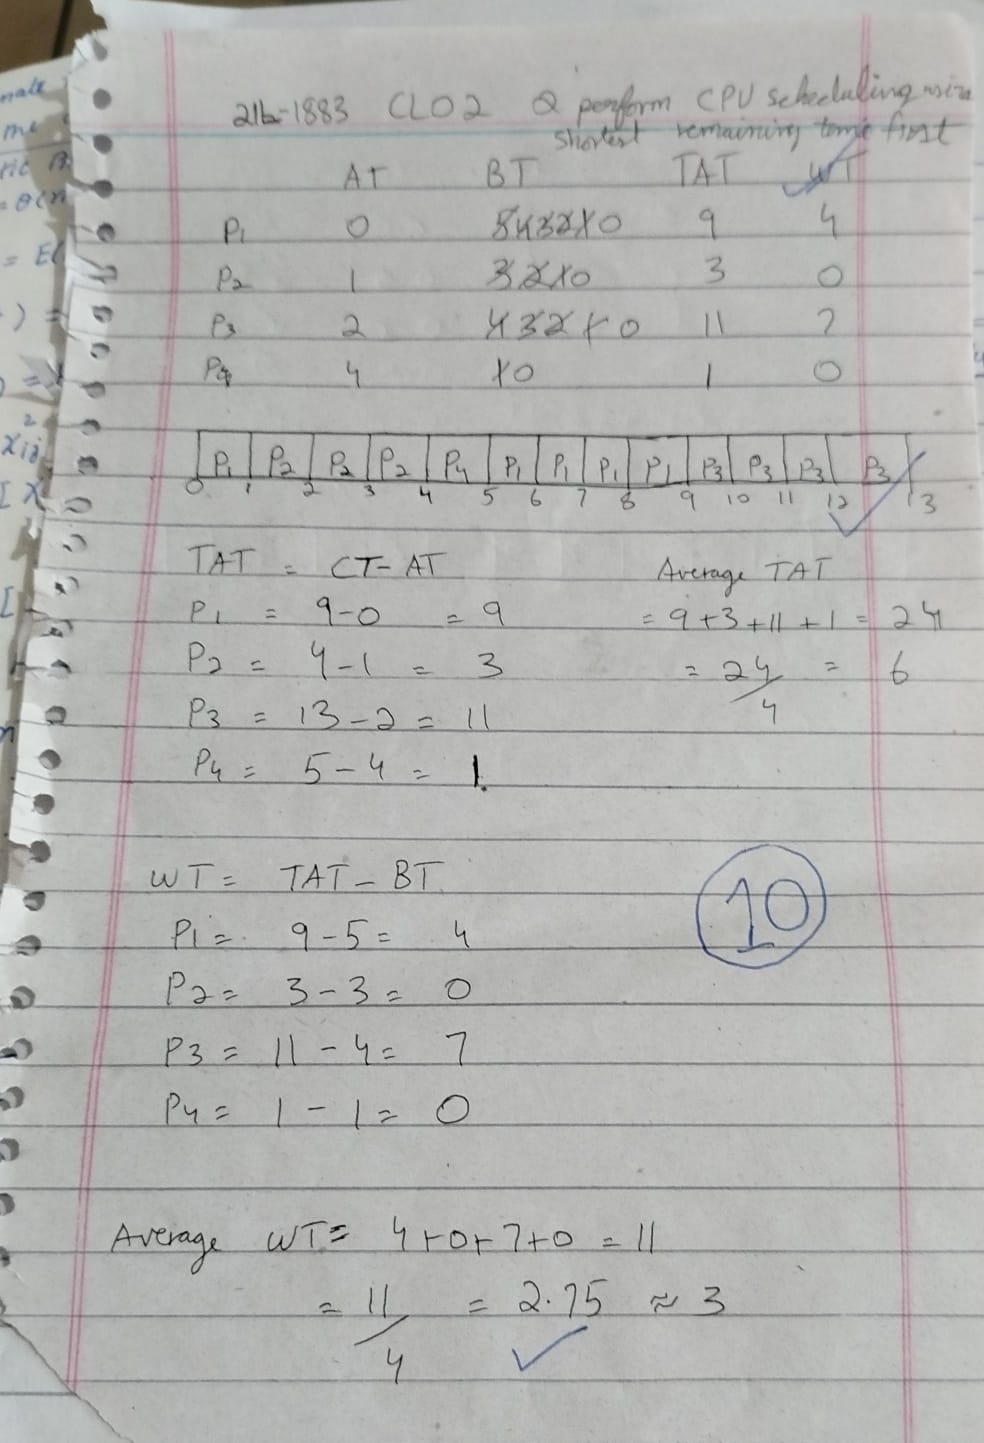 21b-1883 CLO2 Q perform CPU scheduling using
shortest remaining time first
AT BT TAT WT
P1 0 5 4 3 2 1 0 9 4
P2 1 3 2 1 0 3 0
P3 2 4 3 2 1 0 11 7
P4 4 1 0 1 0
P1 P2 P2 P2 P4 P1 P1 P1 P1 P3 P3 P3 P3
0 1 2 3 4 5 6 7 8 9 10 11 12 13
TAT = CT - AT Average TAT
P1 = 9-0 = 9 = 9+3+11+1 = 24
P2 = 4-1 = 3 = 24/4 = 6
P3 = 13-2 = 11
P4 = 5-4 = 1.
WT = TAT - BT
10
P1 = 9-5 = 4
P2 = 3-3 = 0
P3 = 11-4 = 7
P4 = 1-1 = 0
Average WT = 4+0+7+0 = 11
= 11/4 = 2.75 ≈ 3